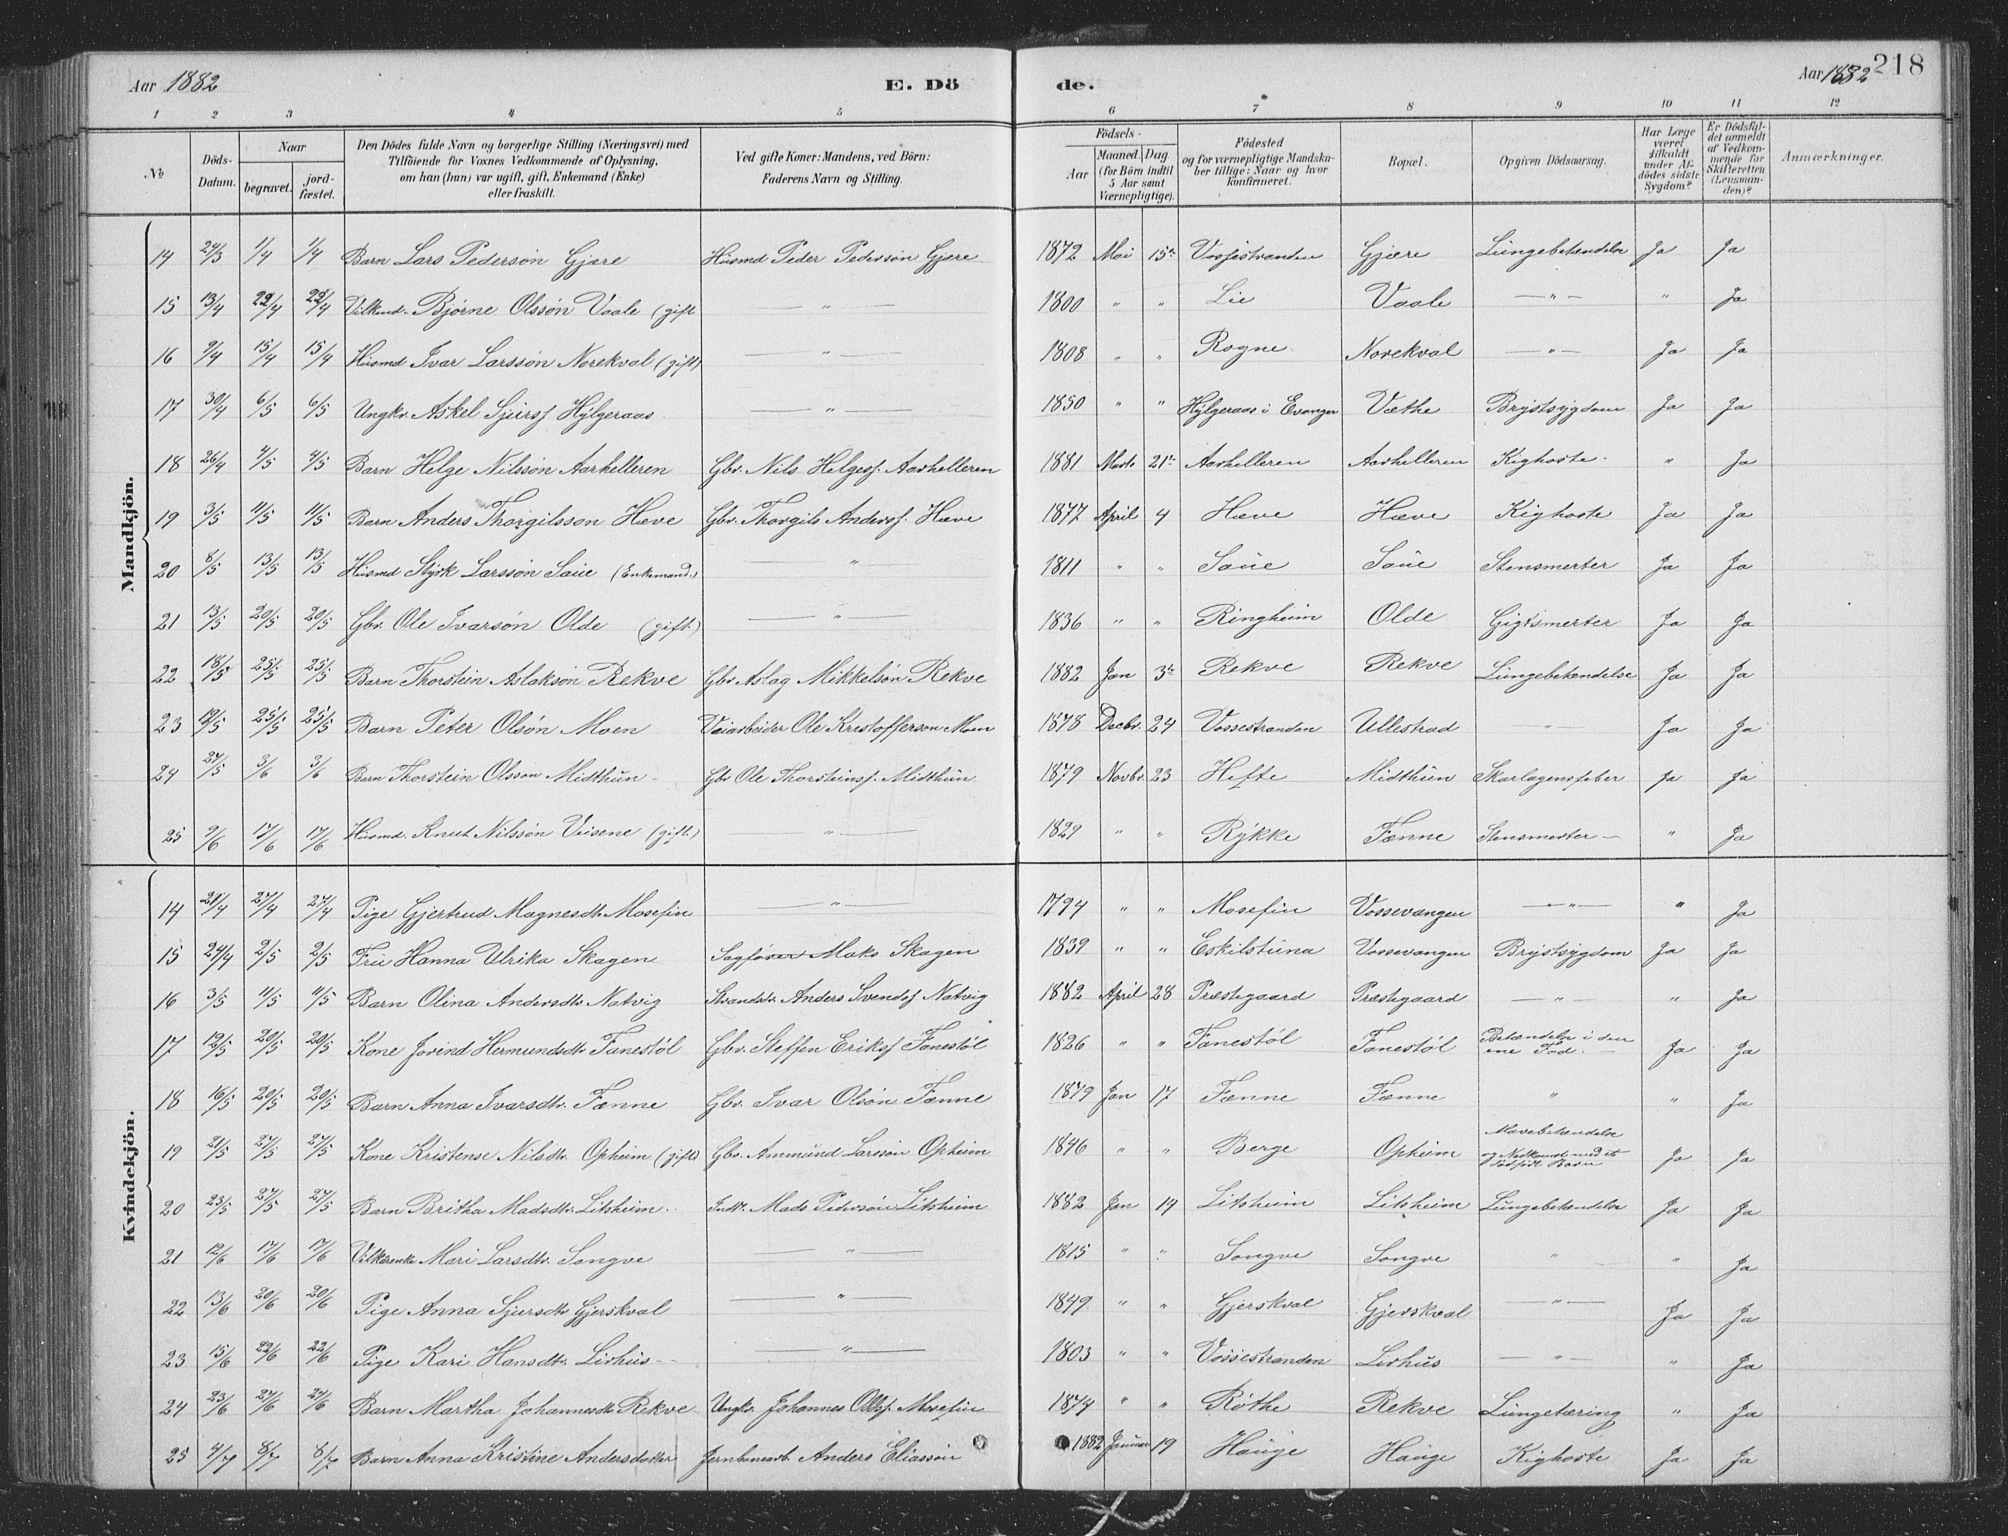 Aar 1882 E. Dö de. Aar 1882 218
1 2 3 4 5 6 7 8 9 10 11 12
№ Döds-Datum. Naar begravet. jordfæstet. Den Dödes fulde Navn og borgerlige Stilling (Næringsvei) med Tilföiende for Voxnes Vedkommende af Oplysning, om han (hun) var ugift, gift, Enkemand (Enke) eller fraskilt. Ved gifte Koner: Mandens, ved Börn: Faderens Navn og Stilling. Födsels- Aar Maaned. Dag (for Börn indtil 5 Aar samt Værnepligtige). Födested og for værnepligtige Mandskaber tillige: Naar og hvor konfirmeret. Bopæl. Opgiven Dödsaarsag. Har Læge været tilkaldt under Afdödes sidste Sygdom? Er Dödsfaldet anmeldt af Vedkommende for Skifteretten (Lensmanden)? Anmærkninger.
Mandkjön.
14 24/3 1/4 1/4 Barn Lars Pedersøn Gjøre Husmd Peder Pedersøn Gjøre 1872 Mai 15de Vossestranden Gjøre Lungebetændelse Ja Ja
15 13/4 22/4 22/4 Vilkmd. Bjørne Olssøn Vaale (gift — " — 1800 " " Lie Vaale — " — " Ja
16 9/4 15/4 15/4 Husmd Ivar Larssøn Norekval (gift) — " — 1808 " " Rogne Norekval — " — Ja Ja
17 30/4 6/5 6/5 Ungkr. Askel Sjursf Hylgeraas — " — 1850 " " Hylgeraas i Evanger Væthe Brystsygdom Ja Ja
18 26/4 4/5 4/5 Barn Helge Nilssøn Aarhelleren Gbr. Nils Helgesf. Aarhelleren 1881 Marts 21de Aarhelleren Aarhelleren Kighoste " Ja
19 3/5 11/5 11/5 Barn Anders Thorgilsson Hæve Gbr. Thorgils Andersf. Hæve 1877 April 4 Hæve Hæve Kighoste Ja Ja
20 8/5 13/5 13/5 Husmd Styrk Larssøn Saue (Enkemand.) — " 1811 " " Saue Saue Stensmerter Ja Ja
21 13/5 20/5 20/5 Gbr. Ole Ivarsøn Olde (gift.) — " — 1836 " " Ringheim Olde Gigtsmerter Ja Ja
22 18/5 25/5 25/5 Barn Thorstein Aslaksøn Rekve Gbr Aslag Mikkelsøn Rekve 1882 Jan 3de Rekve Rekve Lungebetændelse Ja Ja
23 19/5 25/5 25/5 Barn Peter Olsøn Moen Veiarbeider Ole Kristofferson Moen 1878 Decbr. 24 Vossestranden Ullestrad " Ja Ja
24 27/5 3/6 3/6 Barn Thorstein Olsson Midthun Gbr Ole Thorsteinsf. Midthun 1879 Novbr. 23 Hefte Midthun Skarlagensfeber Ja Ja
25 9/6 17/6 17/6 Husmd. Knut Nilssøn Veisene (gift.) — " — 1829 " " Rykke Fænne Stensmerter " Ja
Kvindekjön.
14 21/4 27/4 27/4 Pige Gjertrud Magnesdtr. Mosefin — " — 1794 " " Mosefin Vossevangen — " — " Ja
15 24/4 2/5 2/5 Fru Hanna Ulrika Skagen Sagfører Maks Skagen 1839 " " Eskilstuna Vossevangen Brystsygdom Ja Ja
16 3/5 11/5 11/5 Barn Olina Andersdtr. Natvig Strandstr. Anders Svendsf Natvig 1882 April 28 Præstegaard Præstegaard — " — " Ja
17 12/5 20/5 20/5 Kone Jorind Hermundsdtr Fanestøl Gbr. Steffen Eriksf Fanestøl 1826 " " Fanestøl Fanestøl Betændelse i den ene Fod. — Ja Ja
18 16/5 20/5 20/5 Barn Anna Ivarsdtr. Fænne Gbr. Ivar Olsøn Fænne 1879 Jan 17 Fænne Fænne " " Ja
19 21/5 27/5 27/5 Kone Kristense Nilsdtr. Opheim (gift) Gbr. Ammund Larssøn Opheim 1846 " " Berge Opheim Mavebetændelse og Nedkomst med et dødfødt Barn Ja Ja
20 23/5 27/5 27/5 Barn Britha Madsdtr. Litsheim. Indtr. Mads Pedersøn Litsheim 1882 Jan 14 Litsheim Litsheim Lungebetændelse Ja Ja
21 12/6 17/6 17/6 Vilkårenke Mari Larsdtr. Songve — " — 1815 " " Songve Songve " " Ja
22 13/6 20/6 20/6 Pige Anna Sjursdtr Gjerskval — " — 1849 " " Gjerskval Gjerskval — " — Ja Ja
23 15/6 22/6 22/6 Pige Kari Hansdtr. Lirhus — " — 1803 " " Vossestranden Lirhus — " — " Ja
24 23/6 27/6 27/6 Barn Martha Johannesdtr Rekve Ungkr. Johannes Olsf. Mosefin 1874 " " Røthe Rekve Lungetæring " Ja
25 4/7 8/7 8/7 Barn Anna Kristine Andersdatter Jernbanearb. Anders Eliassøn 1882 Januar 19 Hauge Hauge Kighoste Ja Ja